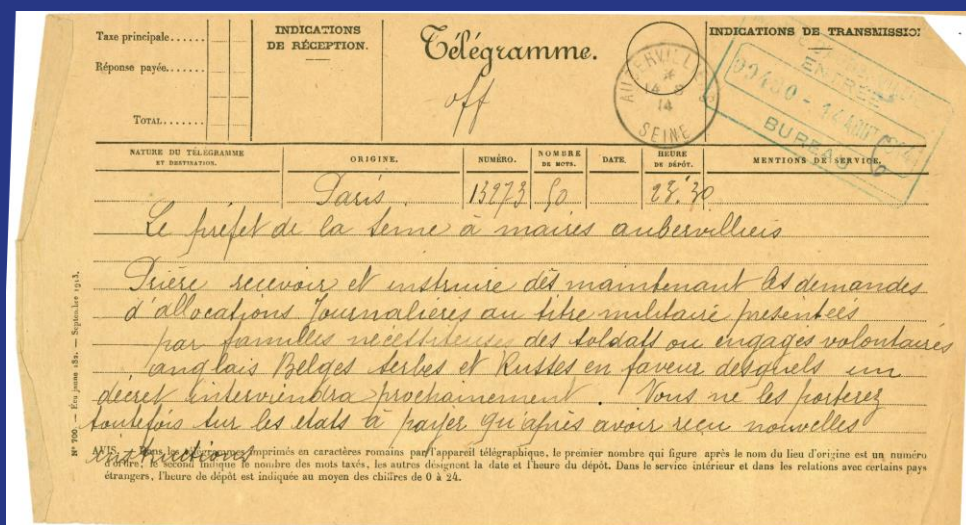 Taxe principale......
Réponse payée.......
TOTAL.......
INDICATIONS
DE RÉCEPTION.
Télégramme.
off
INDICATIONS DE TRANSMISSION
AUBERVILLIERS
14 8
14
SEINE
ENTRÉE
99480 - 14 AOUT
BUREAU
NATURE DU TÉLÉGRAMME
ET DESTINATION.
ORIGINE.
NUMÉRO.
NOMBRE
DE MOTS.
DATE.
HEURE
DE DÉPÔT.
MENTIONS DE SERVICE.
Paris. 13273 50 23.30
Le préfet de la Seine à maires aubervilliers
Prière recevoir et instruire dès maintenant les demandes
d'allocations Journalières au titre militaire présentées
par familles nécessiteuses des soldats ou engagés volontaires
anglais Belges serbes et Russes en faveur desquels un
décret interviendra prochainement. Vous ne les porterez
toutefois sur les etats à payer qu'après avoir recu nouvelles
instructions
AVIS. — Dans les télégrammes imprimés en caractères romains par l'appareil télégraphique, le premier nombre qui figure après le nom du lieu d'origine est un numéro
d'ordre, le second indique le nombre des mots taxés, les autres désignent la date et l'heure du dépôt. Dans le service intérieur et dans les relations avec certains pays
étrangers, l'heure de dépôt est indiquée au moyen des chiffres de 0 à 24.
N° 700. — Septembre 1913.